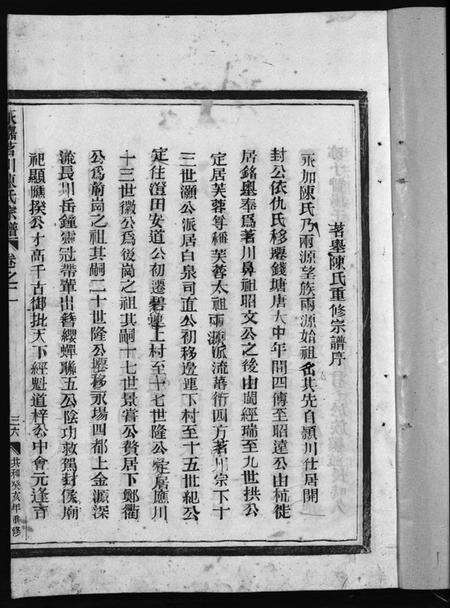 茗嶴陳氏重修宗譜序
永加陳氏乃兩源望族兩源始祖畬其先自潁川仕居開
封公依仇氏移嶴錢塘唐大中年間四傳至昭遠公由杭徙
居銘嶴奉爲茗川鼻祖昭文公之後由閩經瑞至九世拱公
定居芙蓉尊稱芙蓉太祖兩源派流蕃衍四方茗川宗下十
三世灝公派居白泉司直公初移邊連下村至十五世紀公
定住澄田安道公初遷碧蓮上村至十七世隆公定居應川
十三世徽公爲後崗之祖其嗣十七世景嘗公贅居下鄭衢
公爲蔚崗之祖其嗣二十世隆公遷移永塲四都上金源深
流長川岳鐘靈冠帶輩出簪纓蟬聯五公陰功救駕封侯廟
祀顯膴揆公才高千古御批天下經魁道梓公中會元逢吉
永嘉茗川陳氏宗譜 卷之一
三六
共和癸亥年重修